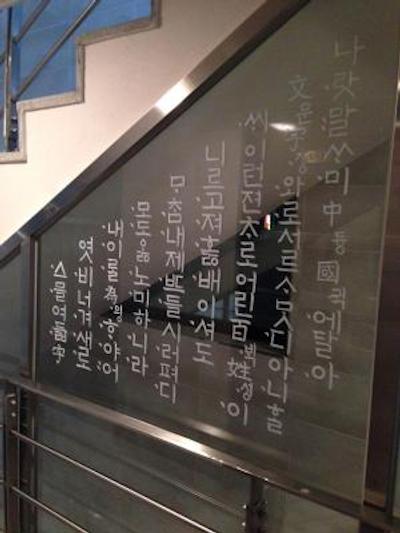 나랏말ᄊᆞ미中듕國귁에달아
文문字ᄍᆞᆼ와로서르ᄉᆞᄆᆞᆺ디아니ᄒᆞᆯ
ᄊᆡ이런젼ᄎᆞ로어린百ᄇᆡᆨ姓셩이
니르고져호ᇙ배이셔도
ᄆᆞᄎᆞᆷ내제ᄠᅳ들시러펴디
몯ᄒᆞᇙ노미하니라
내이ᄅᆞᆯ為윙ᄒᆞ야어
엿비너겨새로
스믈여듧字